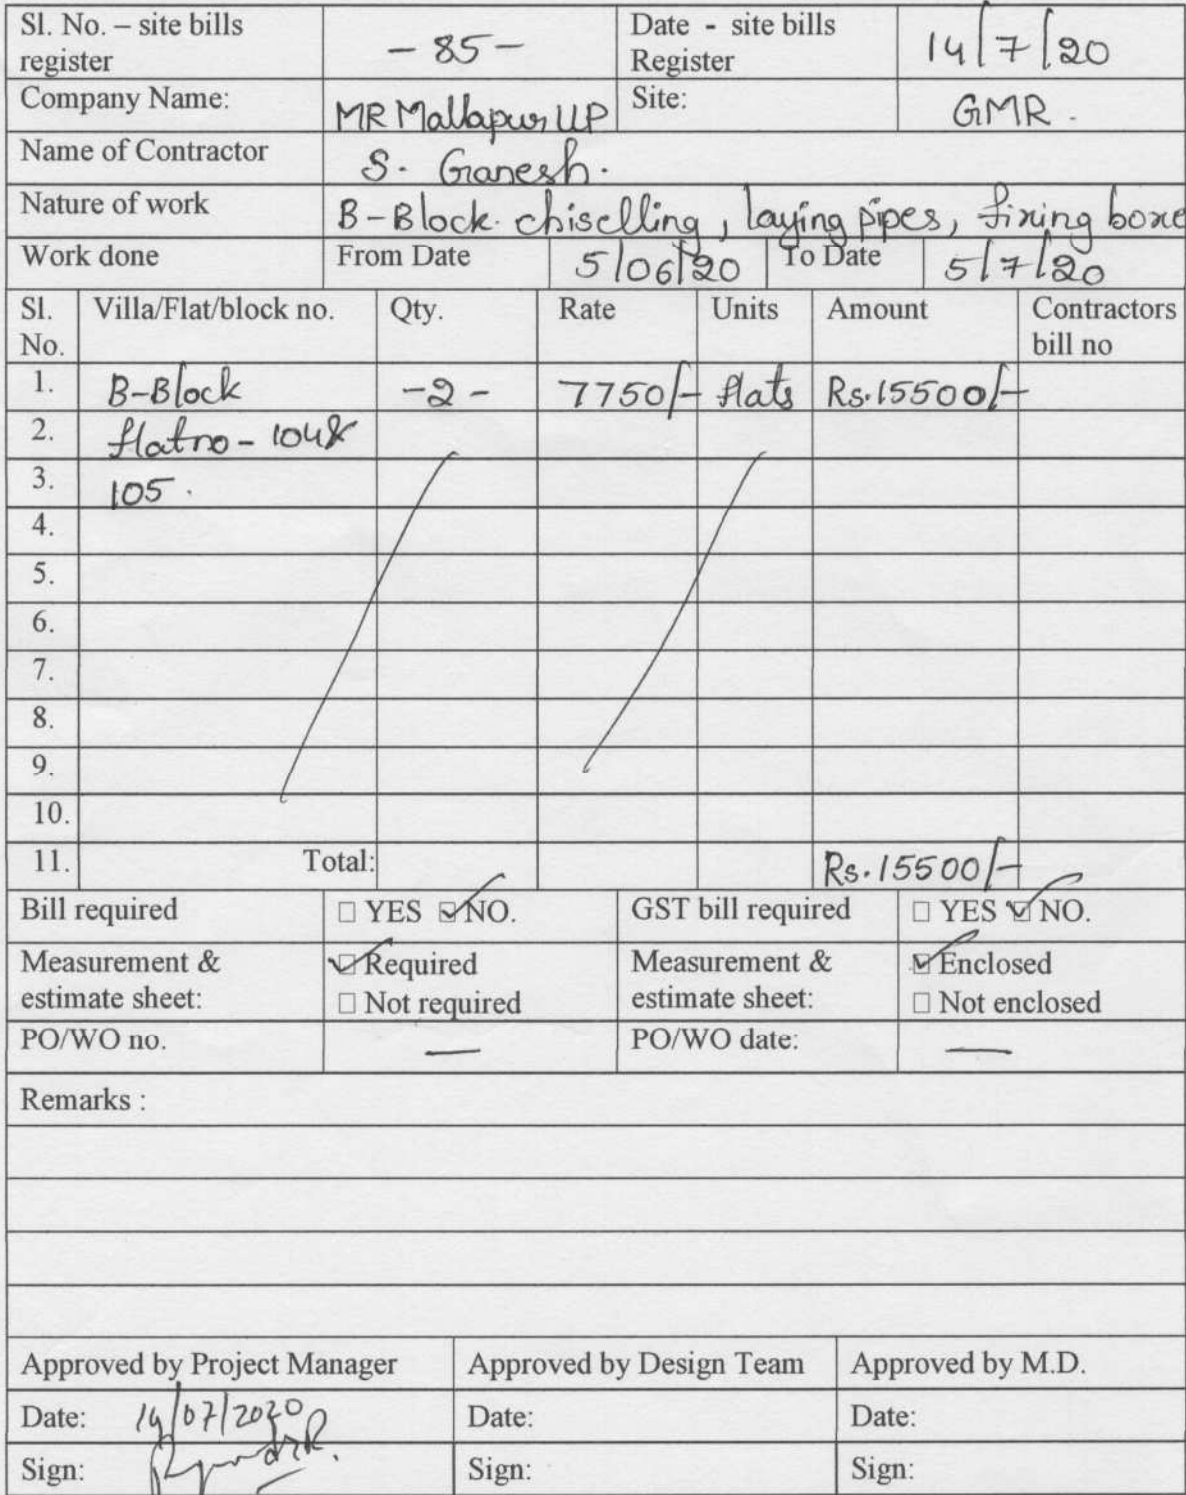 Sl. No. – site bills register - 85 - Date - site bills Register 14/7/20
Company Name: MR Mallapur LLP Site: GMR.
Name of Contractor S. Ganesh.
Nature of work B-Block chiselling, laying pipes, fixing boxe
Work done From Date 5/06/20 To Date 5/7/20
Sl. No. Villa/Flat/block no. Qty. Rate Units Amount Contractors bill no
1. B-Block -2- 7750/- flats Rs.15500/-
2. flat no - 104 &
3. 105.
4.
5.
6.
7.
8.
9.
10.
11. Total: Rs.15500/-
Bill required □ YES ☑ NO. GST bill required □ YES ☑ NO.
Measurement & estimate sheet: ☑ Required □ Not required Measurement & estimate sheet: ☑ Enclosed □ Not enclosed
PO/WO no. — PO/WO date: —
Remarks :
Approved by Project Manager Approved by Design Team Approved by M.D.
Date: 14/07/2020 Date: Date:
Sign: Sign: Sign: